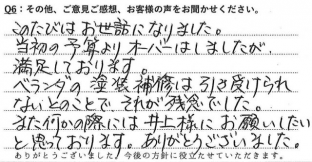 Q6:その他、ご意見ご感想、お客様の声をお聞かせください。
このたびはお世話になりました。
当初の予算よりオーバーはしましたが、
満足しております。
ベランダの塗装補修は引き受けられ
ないとのことで、それが残念でした。
また何かの際には井上様にお願いしたい
と思っております。ありがとうございました。
ありがとうございました。今後の方針に役立たせていただきます。